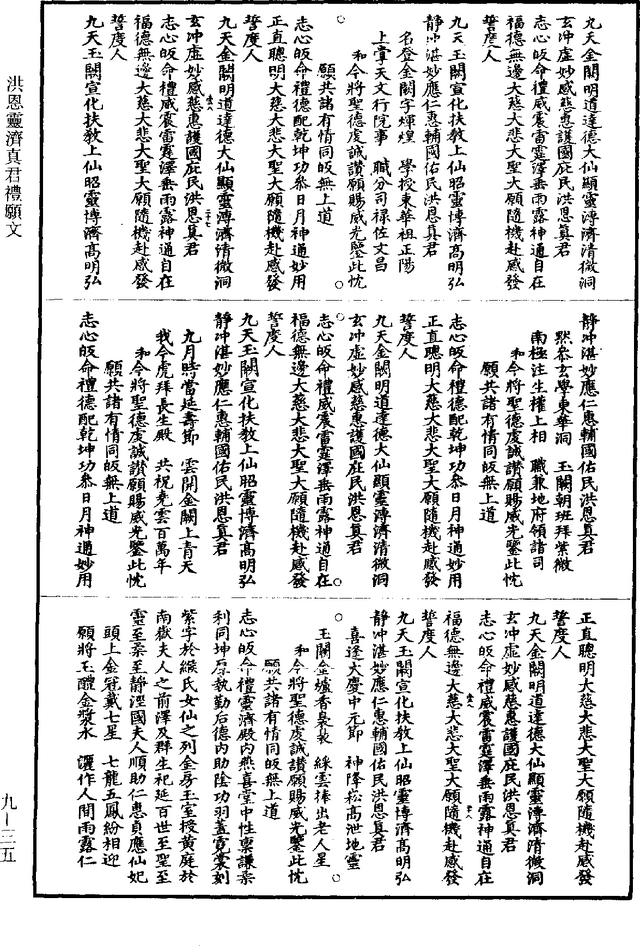 九天金闕明道達德大仙顯靈溥濟清微洞
玄冲虛妙感慈惠護國庇民洪恩真君
志心皈命禮威震雷霆澤垂雨露神通自在
福德無邊大慈大悲大聖大願隨機赴感發
誓度人
九天玉闕宣化扶教上仙昭靈博濟高明弘
靜冲湛妙應仁惠輔國佑民洪恩真君
名登金闕字煇煌 學授東華祖正陽
上掌天文行院事 職分司祿佐文昌
和 今將聖德虔誠讚願賜威光鑒此忱
願共諸有情同皈無上道
志心皈命禮德配乾坤功叅日月神通妙用
正直聰明大慈大悲大聖大願隨機赴感發
誓度人
九天金闕明道達德大仙顯靈溥濟清微洞
玄冲虛妙感慈惠護國庇民洪恩真君
志心皈命禮威震雷霆澤垂雨露神通自在
福德無邊大慈大悲大聖大願隨機赴感發
誓度人
九天玉闕宣化扶教上仙昭靈博濟高明弘
靜冲湛妙應仁惠輔國佑民洪恩真君
默叅玄學東華洞 玉闕朝班拜紫微
南極注生權上相 職兼地府領諸司
和 今將聖德虔誠讚願賜威光鑒此忱
願共諸有情同皈無上道
志心皈命禮德配乾坤功叅日月神通妙用
正直聰明大慈大悲大聖大願隨機赴感發
誓度人
九天金闕明道達德大仙顯靈溥濟清微洞
玄冲虛妙感慈惠護國庇民洪恩真君
志心皈命禮威震雷霆澤垂雨露神通自在
福德無邊大慈大悲大聖大願隨機赴感發
誓度人
九天玉闕宣化扶教上仙昭靈博濟高明弘
靜冲湛妙應仁惠輔國佑民洪恩真君
九月時當延壽節 雲開金闕上青天
我今虎拜長生殿 共祝堯雲百萬年
和 今將聖德虔誠讚願賜威光鑒此忱
願共諸有情同皈無上道
志心皈命禮德配乾坤功叅日月神通妙用
正直聰明大慈大悲大聖大願隨機赴感發
誓度人
九天金闕明道達德大仙顯靈溥濟清微洞
玄冲虛妙感慈惠護國庇民洪恩真君
志心皈命禮威震雷霆澤垂雨露神通自在
福德無邊大慈大悲大聖大願隨機赴感發
誓度人
九天玉闕宣化扶教上仙昭靈博濟高明弘
靜冲湛妙應仁惠輔國佑民洪恩真君
喜逢大慶中元節 神降崧高泄地靈
玉闕金爐香裊裊 綵雲捧出老人星
和 今將聖德虔誠讚願賜威光鑒此忱
願共諸有情同皈無上道
志心皈命禮靈濟殿內燕喜堂中性稟謙柔
利同坤厚執勤后德內助陰功羽蓋霓裳刻
紫字於緱氏女仙之列金房玉室授黃庭於
南嶽夫人之前澤及群生祀延百世至聖至
靈至柔至靜涇國夫人順助仁惠貞應仙妃
頭上金冠戴七星 七龍五鳳紛相迎
願將玉醴金漿水 灑作人間雨露仁
洪恩靈濟真君禮願文
九—三五